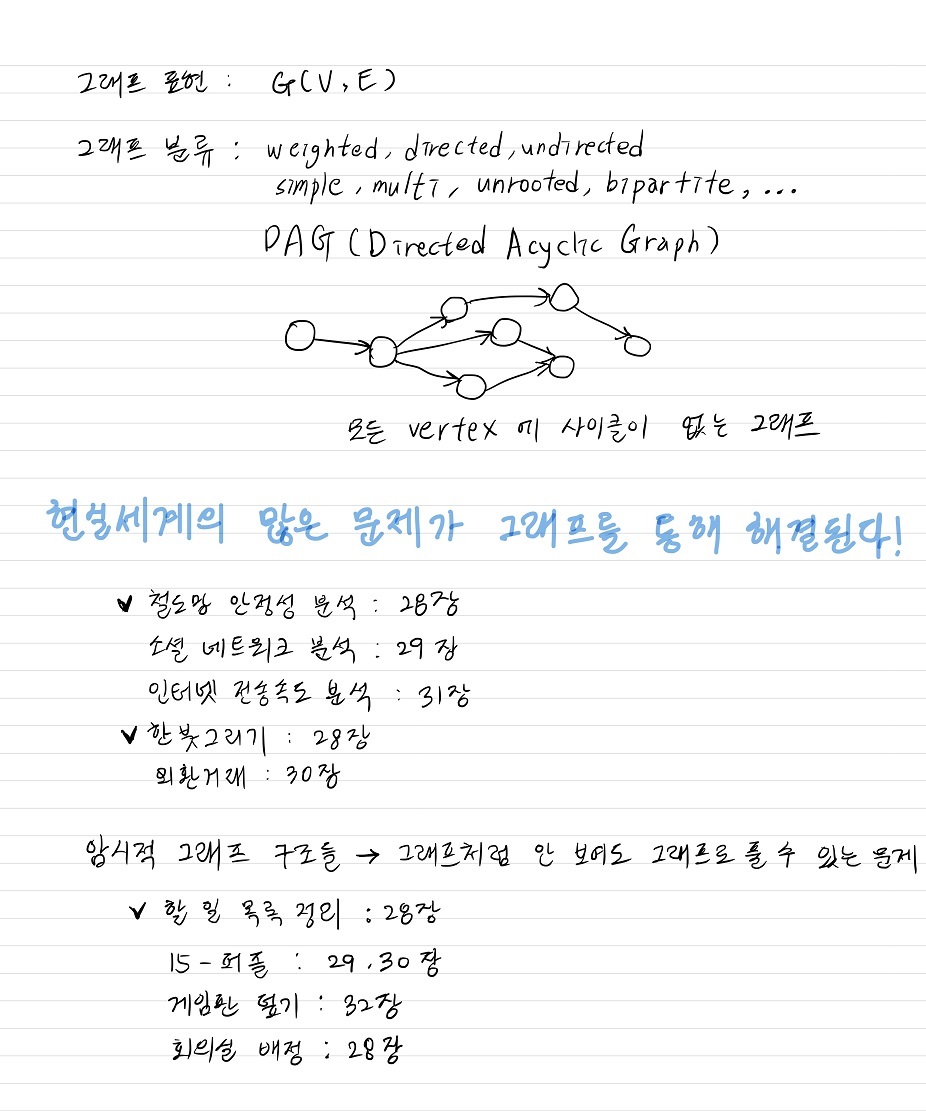 그래프 표현 : G(V, E)
그래프 분류 : weighted, directed, undirected
simple, multi, unrooted, bipartite, ...
DAG (Directed Acyclic Graph)
모든 vertex에 사이클이 없는 그래프
현실세계의 많은 문제가 그래프를 통해 해결된다!
✓ 철도망 안정성 분석 : 28장
소셜 네트워크 분석 : 29장
인터넷 전송속도 분석 : 31장
✓ 한붓그리기 : 28장
외환거래 : 30장
암시적 그래프 구조들 → 그래프처럼 안 보여도 그래프로 풀 수 있는 문제
✓ 할 일 목록 정리 : 28장
15-퍼즐 : 29, 30장
게임판 덮기 : 32장
회의실 배정 : 28장